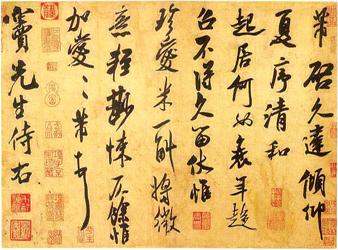 芾啟久違傾仰
夏序清和
起居何如衰年趨
召不得久留伏惟
珍愛米一斛將微
意輕尠悚仄餘惟
加愛〻芾頓首
竇先生侍右